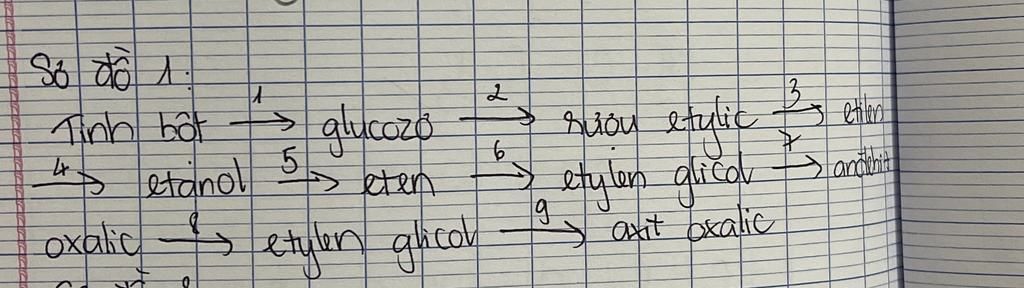 Sơ đồ 1:
Tinh bột 1→ glucozơ 2→ rượu etylic 3→ etilen
4→ etanol 5→ eten 6→ etylen glicol 7→ anđehit
oxalic 8→ etylen glicol 9→ axit oxalic